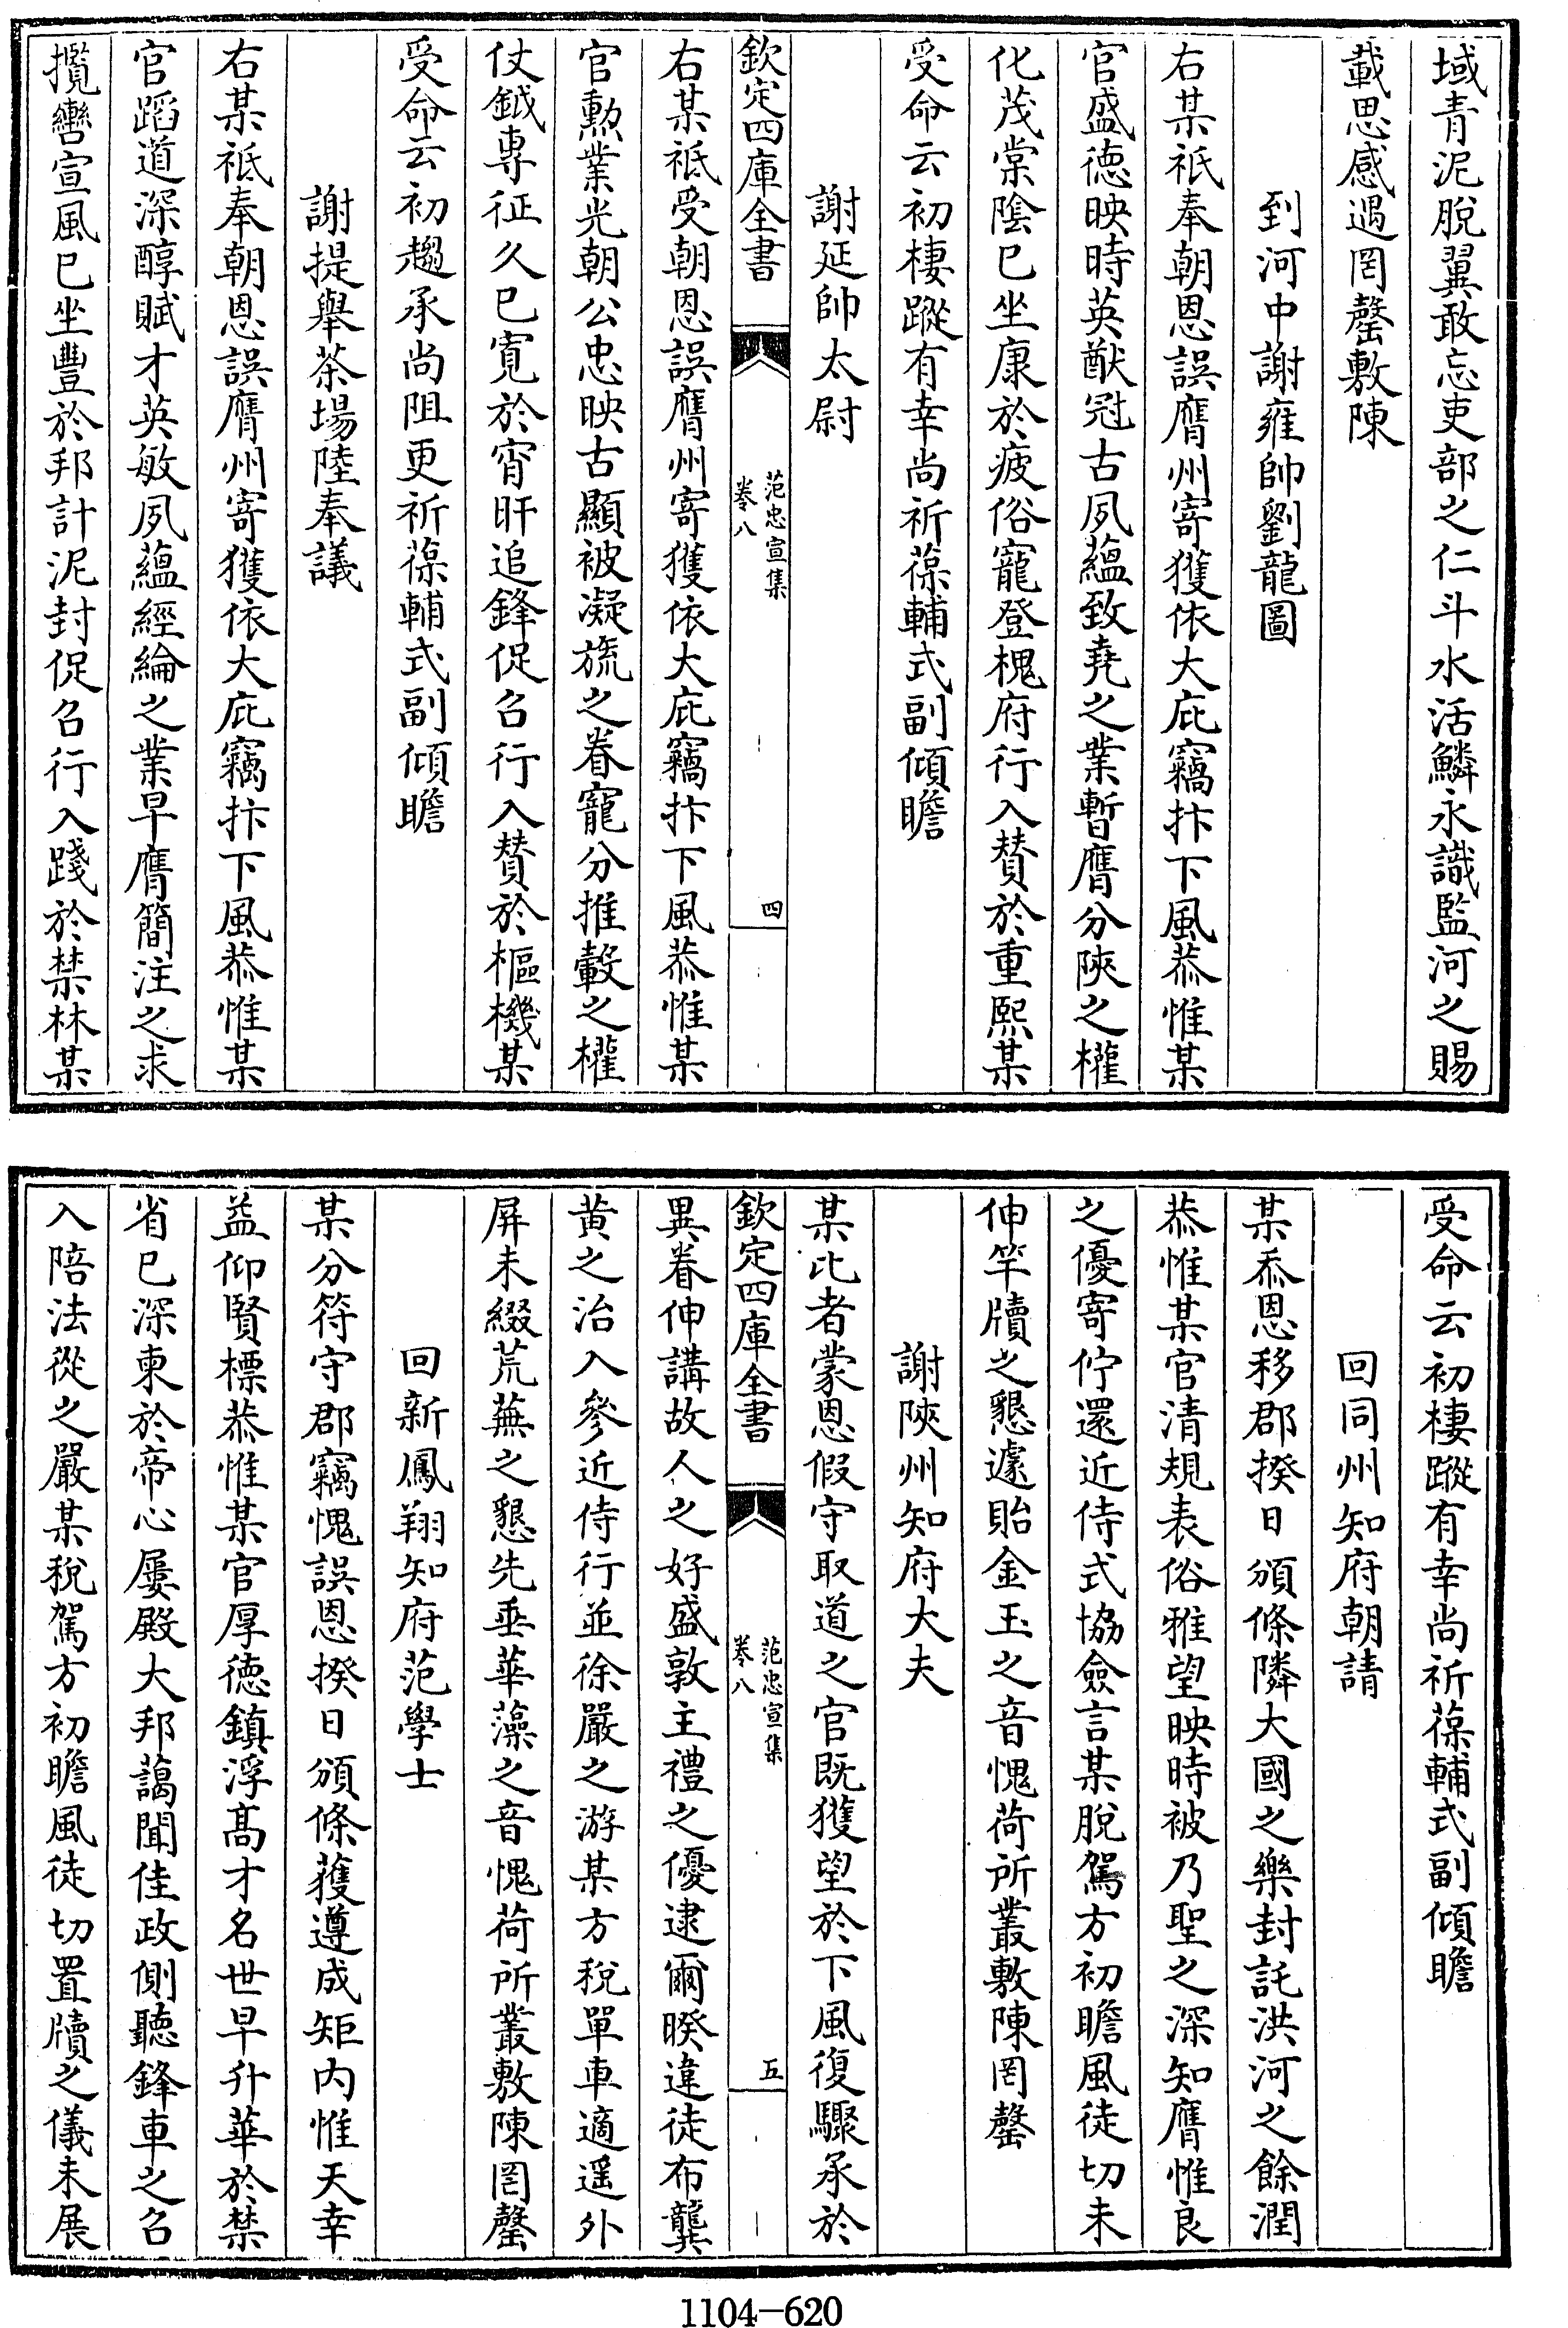 域青泥脫翼敢忘吏部之仁斗水活鱗永識監河之賜
載思感遇罔罄敷陳
到河中謝雍帥劉龍圖
右某祗奉朝恩誤膺州寄獲依大庇竊抃下風恭惟某
官盛德映時英猷冠古夙蘊致堯之業暫膺分陜之權
化茂棠陰已坐康於疲俗寵登槐府行入賛於重熙某
受命云初棲蹤有幸尚祈葆輔式副傾瞻
謝延帥太尉
欽定四庫全書
范忠宣集
卷八
四
右某祗受朝恩誤膺州寄獲依大庇竊抃下風恭惟某
官勲業光朝公忠映古顯被凝旒之眷寵分推轂之權
仗鉞專征久已寬於宵旰追鋒促召行入賛於樞機某
受命云初趨承尚阻更祈葆輔式副傾瞻
謝提舉茶場陸奉議
右某祗奉朝恩誤膺州寄獲依大庇竊抃下風恭惟某
官蹈道深醇賦才英敏夙蘊經綸之業早膺簡注之求
攬轡宣風已坐豐於邦計泥封促召行入踐於禁林某
受命云初棲蹤有幸尚祈葆輔式副傾瞻
回同州知府朝請
某忝恩移郡揆日頒條隣大國之樂封託洪河之餘潤
恭惟某官清規表俗雅望映時被乃聖之深知膺惟良
之優寄佇還近侍式協僉言某脫駕方初瞻風徒切未
伸竿牘之懇遽貽金玉之音愧荷所叢敷陳罔罄
謝陜州知府大夫
某比者蒙恩假守取道之官既獲望於下風復驟承於
欽定四庫全書
范忠宣集
卷八
五
異眷伸講故人之好盛敦主禮之優逮爾暌違徒布龔
黄之治入參近侍行並徐嚴之游某方稅單車適遥外
屏未綴荒蕪之懇先垂華藻之音愧荷所叢敷陳罔罄
回新鳳翔知府范學士
某分符守郡竊愧誤恩揆日頒條獲遵成矩内惟天幸
益仰賢標恭惟某官厚德鎮浮髙才名世早升華於禁
省已深東於帝心屢殿大邦藹聞佳政側聽鋒車之召
入陪法從之嚴某稅駕方初瞻風徒切置牘之儀未展
1104-620